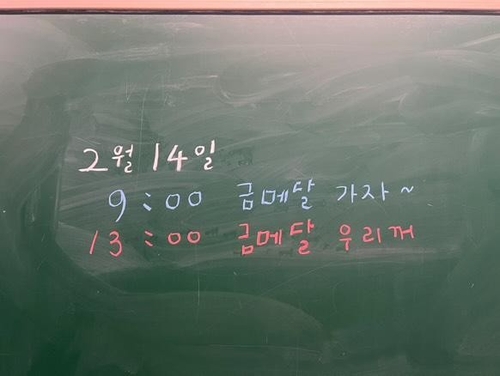 2월 14일
9:00 금메달 가자~
13:00 금메달 우리꺼